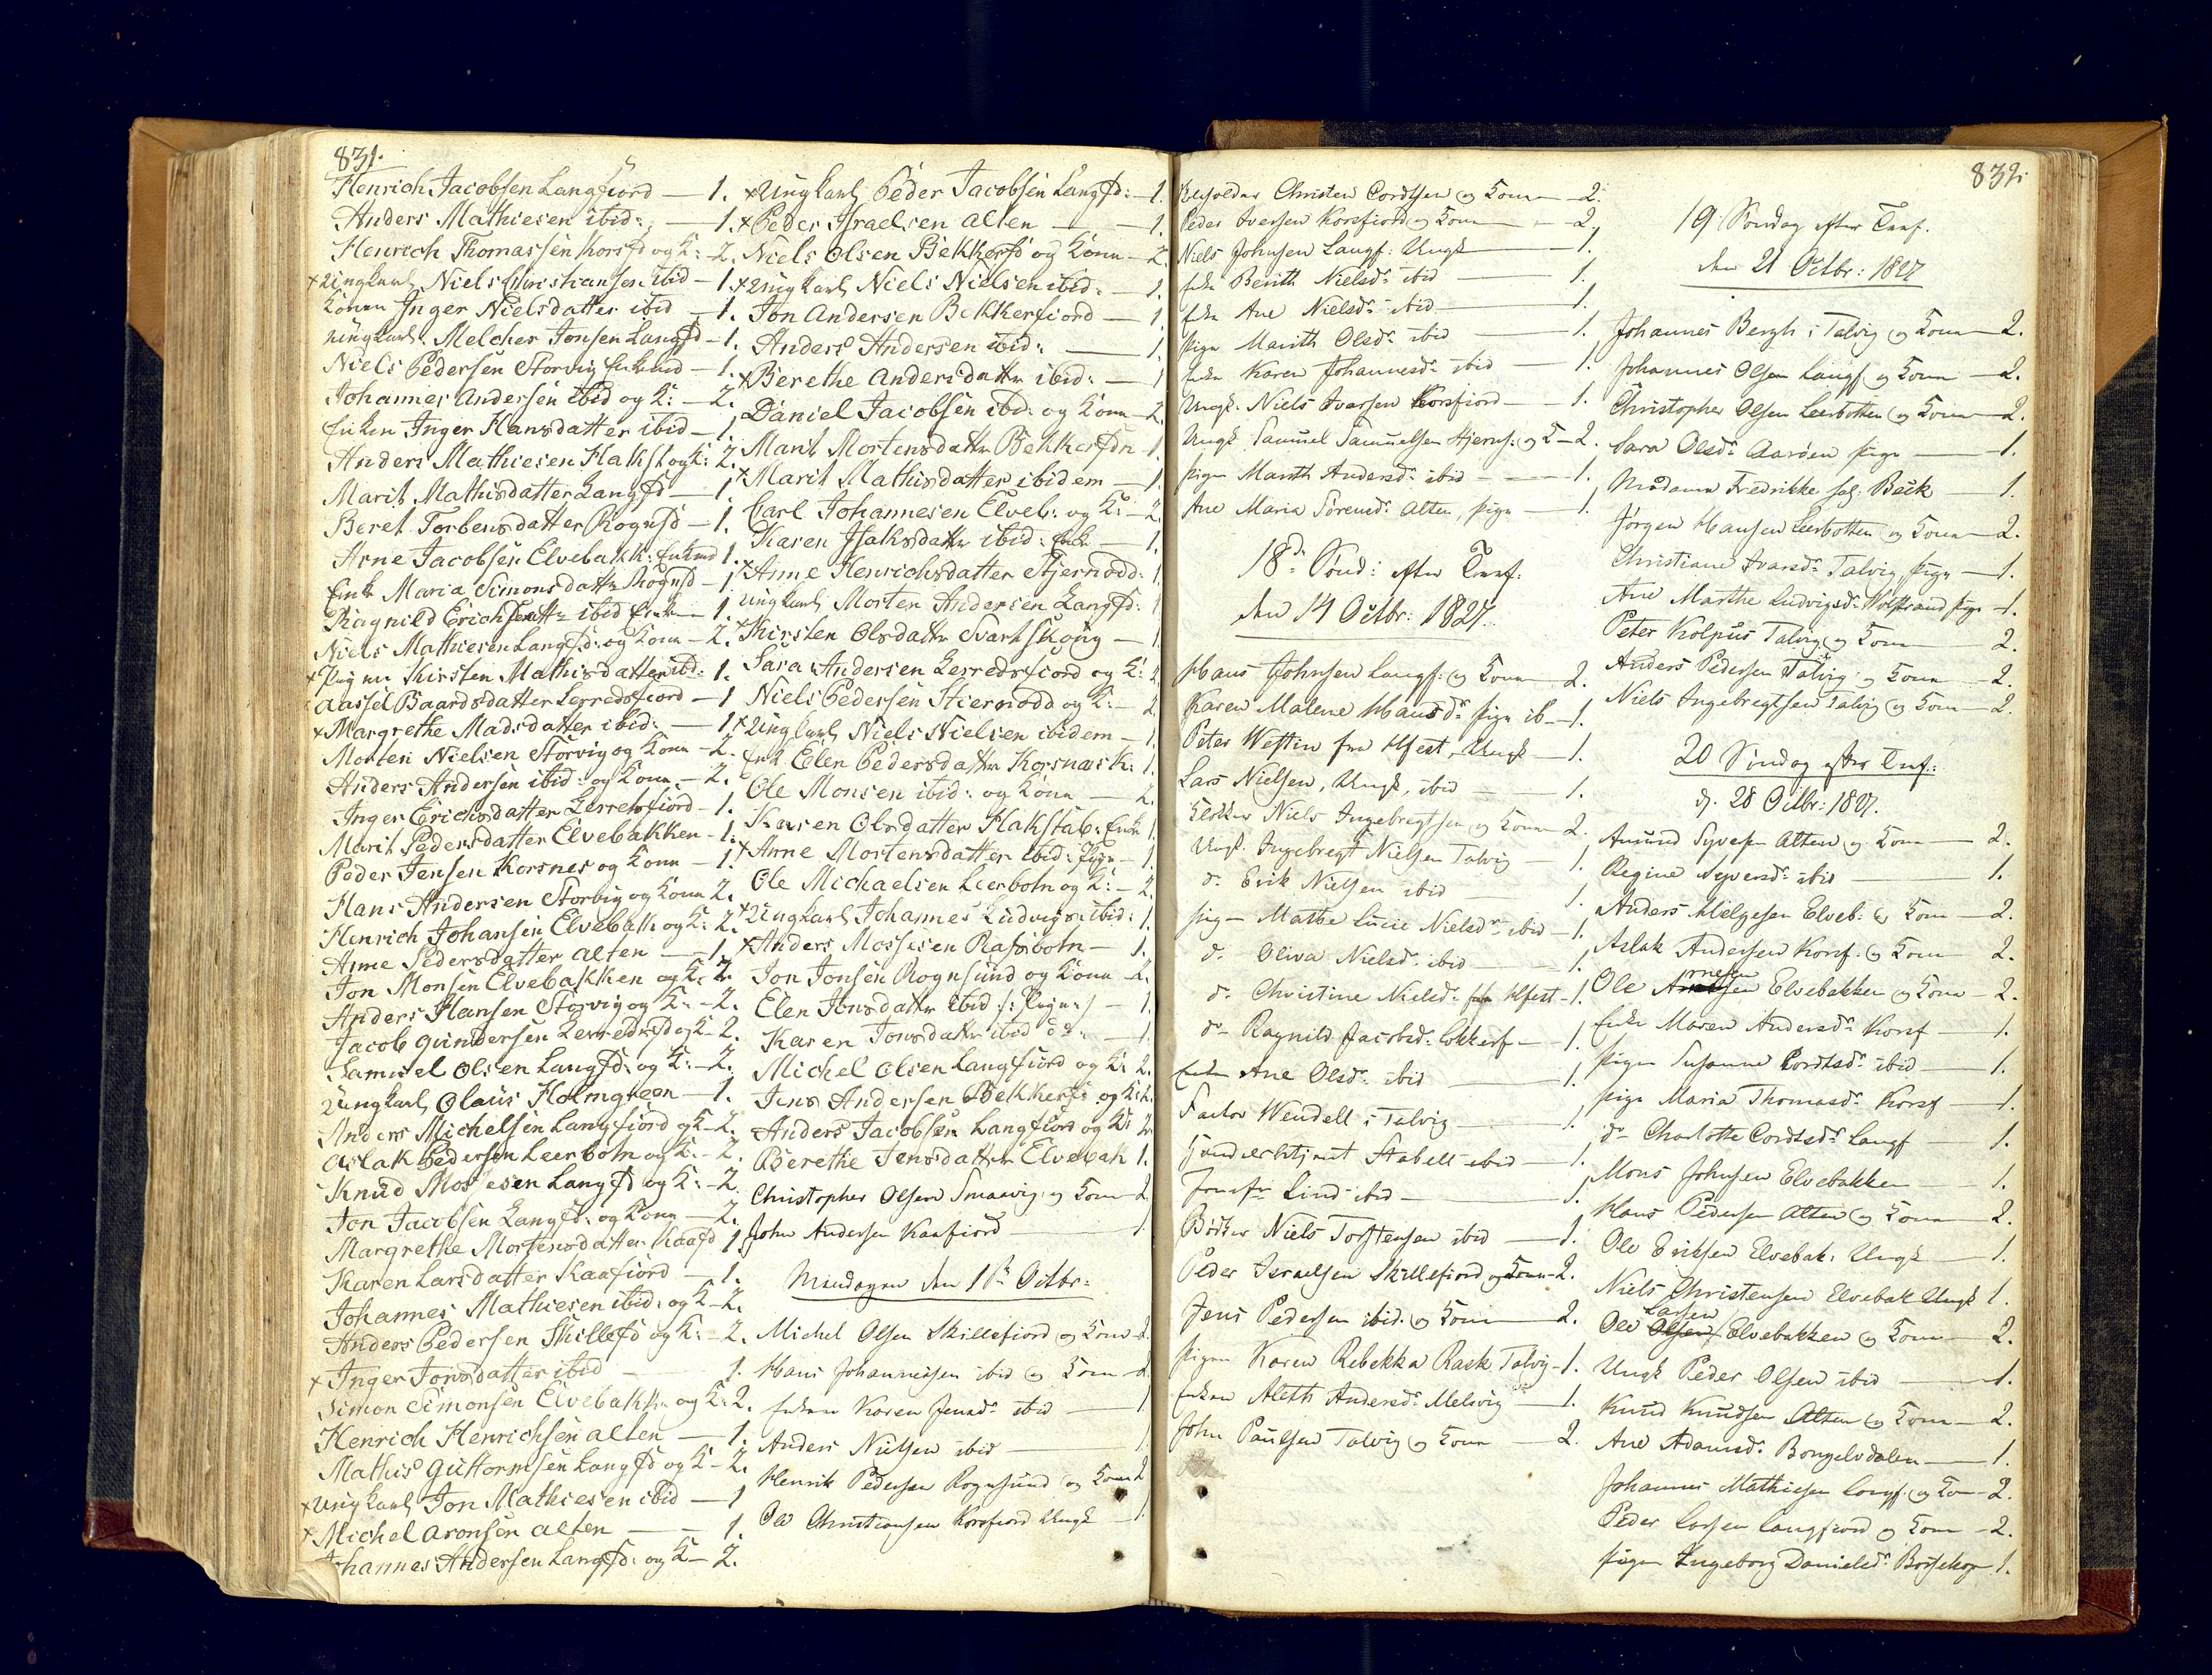 831.
Henrich Jacobsen Langfiord — 1.
Anders Mathiesen ibid: — 1.
Henrich Thomassen Korsfd og K: – 2.
× Ungkarl Niels Christiansen ibid – 1.
Konen Inger Nielsdatter ibid – 1.
Ungkarl Melcher Jonsen Langfd – 1.
Niels Pedersen Storvig Enkmd – 1.
Johannes Andersen ibid og K: – 2.
Enken Inger Hansdatter ibid – 1.
Anders Mathiesen Flakst og K: 2.
Marit Mathisdatter Langfd – 1.
Beret Torbensdatter Rognsd – 1.
Arne Jacobsen Elvebakk: Enkmd 1.
Enk Maria Simonsdattr Rognsd – 1
Ragnild Erichsdattr ibid Enke – 1.
Niels Mathiesen Langfd: og Kone – 2.
× Pigen Kirsten Mathisdatter ibd: 1.
Aassel Baardsdatter Lerredsfiord – 1
× Margrethe Madsdatter ibid: — 1
Morten Nielsen Storvig og Kone – 2.
Anders Andersen ibid: og Kone – 2.
Inger Erichsdatter Lerredsfiord – 1.
Marit Pedersdatter Elvebakken – 1.
Peder Jensen Korsnes og Kone – 1.
Hans Andersen Storvig og Kone 2.
Henrich Johansen Elvebak og K: 2.
Anne Pedersdatter Alten — 1.
Jon Monsen Elvebakken og K: 2.
Anders Hansen Storvig og K: – 2.
Jacob Gundersen Lerredsfd og K – 2.
Samuel Olsen Langfd: og K: – 2.
Ungkarl Olaus Holmgreen – 1.
Anders Michelsen Langfiord og K – 2.
Aslak Pedersen Leerbotn og K: – 2.
Knud Mosesen Langfd og K: – 2.
Jon Jacobsen Langfd: og Kone — 2.
Margrethe Mortensdatter Kaafd 1.
Karen Larsdatter Kaafiord — 1.
Johannes Mathiesen ibid: og K – 2.
Anders Pedersen Skillefd og K: – 2.
× Inger Jonsdatter ibid — 1.
Simon Simonsen Elvebakk: og K: 2.
Henrich Henrichsen Alten — 1.
Mathis Guttormsen Langfd og K – 2.
× Ungkarl Jon Mathiesen ibid — 1
× Michel Aronsen Alten — 1.
Johannes Andersen Langfd: og K – 2.
× Ungkarl Peder Jacobsen Langfd: – 1.
× Peder Israelsen Alten — 1.
Niels Olsen Bekkerfd og Kone – 2.
× Ungkarl Niels Nielsen ibid: – 1.
Jon Andersen Bekkerfiord — 1
Anders Andersen ibid: — 1.
× Berethe Andersdattr ibid: — 1
Daniel Jacobsen ibd: og Kone – 2.
Marit Mortensdattr Bekkerfdn 1.
× Marit Mathisdatter ibidem — 1.
Carl Johannesen Elveb: og K: – 2.
Karen Isaksdattr ibid: Enk — 1.
× Anne Henrichsdatter Stjernodd: 1.
Ungkarl Morten Andersen Langfd: 1
× Kirsten Olsdattr Svartskoug — 1
Sara Andersen Lerredsfiord og K: 2.
Niels Pedersen Stiernodd og K: – 2.
× Ungkarl Niels Nielsen ibidem – 1.
Enk Elen Pedersdattr Korsnæsk: 1.
Ole Monsen ibid: og Kone — 2.
Karen Olsdatter Flakstad: Enke 1.
× Anne Mortensdatter ibid: Pige – 1.
Ole Michaelsen Leerbotn og K: – 2.
× Ungkarl Johannes Ludvigs: ibid: 1.
× Anders Mossesen Rafsbotn — 1.
Jon Jonsen Rognsund og Kone – 2.
Elen Jonsdattr ibid /: Pige :/ – 1.
Karen Jonsdattr ibid do: — 1.
Michel Olsen Langfiord og K: 2.
Jens Andersen Bekkerfd og K: 2.
Anders Jacobsen Langfiord og K: 2.
Berethe Jensdatter Elvebak 1.
Christopher Olsen Smaavig og Kone – 2
John Andersen Kaafiord — 1.
Mandagen den 1te Octbr:
Michel Olsen Skillefiord og Kone – 2.
Hans Johannessen ibid og Kone – 2
Enken Karen Jensdr ibid — 1
Anders Nielsen ibid — 1.
Henrik Pedersen Rognsund og Kone 2
Ole Christiansen Korsfiord Ungk – 1.
832.
Christen Cordtsen og Kone – 2.
Peder Iversen Korsfiord og Kone — 2.
Niels Johnsen Langf: Ungk — 1.
Enke Berith Nielsdr ibid — 1.
Enke Ane Nielsdr ibid — 1.
Pige Marith Olsdr ibid — 1.
Enke Karen Johannesdr ibid — 1.
Ungk. Niels Ivarsen Korsfiord — 1.
Ungk. Samuel Samuelsen Stjerns: og K – 2.
Pige Marith Andersdr ibid — 1.
Ane Maria Sørensdr Alten, Pige — 1.
18de Sønd: efter Trinf:
den 14 Octbr: 1827.
Hans Johnsen Langf: og Kone 2.
Karen Malene Hansdr Pige ib – 1.
Peter Westin fra Hfest, Ungk — 1.
Lars Nielsen, Ungk, ibid — 1.
Klokker Niels Ingebregtsen og Kone 2.
Ungk. Ingebregt Nielsen Talvig 1.
do Erik Nielsen ibid — 1.
Pige Marthe Lucie Nielsdr ibid – 1.
do Oliva Nielsdr ibid — 1.
do Christine Nielsdr Hfest – 1.
do Ragnild Jacobsdr Bekkerf — 1.
Enken Ane Olsdr ibid — 1.
Factor Wendell i Talvig — 1.
Stabell ibid — 1.
Jomfr Lind ibid — 1.
Bødker Niels Torstensen ibid — 1.
Peder Israelsen Skillefiord og Kone – 2.
Jens Pedersen ibid. og Kone — 2.
Pigen Karen Rebekka Rask Talvig – 1.
Enken Aleth Andersdr Melsvig — 1.
John Paulsen Talvig og Kone — 2.
19 Søndag efter Trinf.
den 21 Octbr: 1827
Johannes Bergh i Talvig og Kone — 2.
Johannes Olsen Langf og Kone — 2.
Christopher Olsen Leerbotten og Kone — 2.
Sara Olsdr Aarøen Pige — 1.
Madame Fredrikke sal. Beck — 1.
Jørgen Hansen Leerbotten og Kone — 2.
Christiane Ivarsdr Talvig Pige — 1.
Ane Marthe Ludvigsdr Wolfstrand Pige – 1.
Peter Kolpus Talvig og Kone — 2.
Anders Pedersen Talvig og Kone — 2.
Niels Ingebregtsen Talvig og Kone — 2.
20 Søndag efter Trf.:
d. 28 Octbr: 1827.
Amund Syvers: Alten og Kone — 2.
Regine Syversdr ibid — 1.
Anders Helgesen Elveb: og Kone — 2.
Aslak Andersen Korsf: og Kone 2.
Ole Arnesen Elvebakken og Kone – 2.
Enke Maren Andersdr Korsf — 1.
Pigen Susanne Cordtsdr ibid — 1.
Pige Maria Thomasdr Korsf — 1.
do Charlotte Cordtsdr Langf — 1.
Mons Johnsen Elvebakken — 1.
Hans Pedersen Alten og Kone — 2.
Ole Eriksen Elvebak: Ungk — 1.
Niels Christensen Elvebak Ungk 1.
Larsen
Ole Olsen Elvebakken og Kone — 2.
Ungk Peder Olsen ibid — 1.
Knud Knudsen Alten og Kone — 2.
Ane Adamsdr Bongelvdalen — 1.
Johannes Mathiesen Langf: og Ko – 2.
Peder Larsen Langfiord og Kone – 2.
Pigen Ingeborg Danielsdr Bossekop 1.